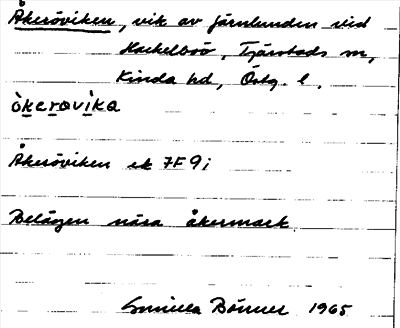 Åkeröviken, vik av Järnlunden vid
Hackelboö, Tjärstads sn,
Kinda hd, Östg. l.
òkeravika
Åkeröviken ek 7F 9i
Belägen nära åkermark.
Gunilla Bönner 1965